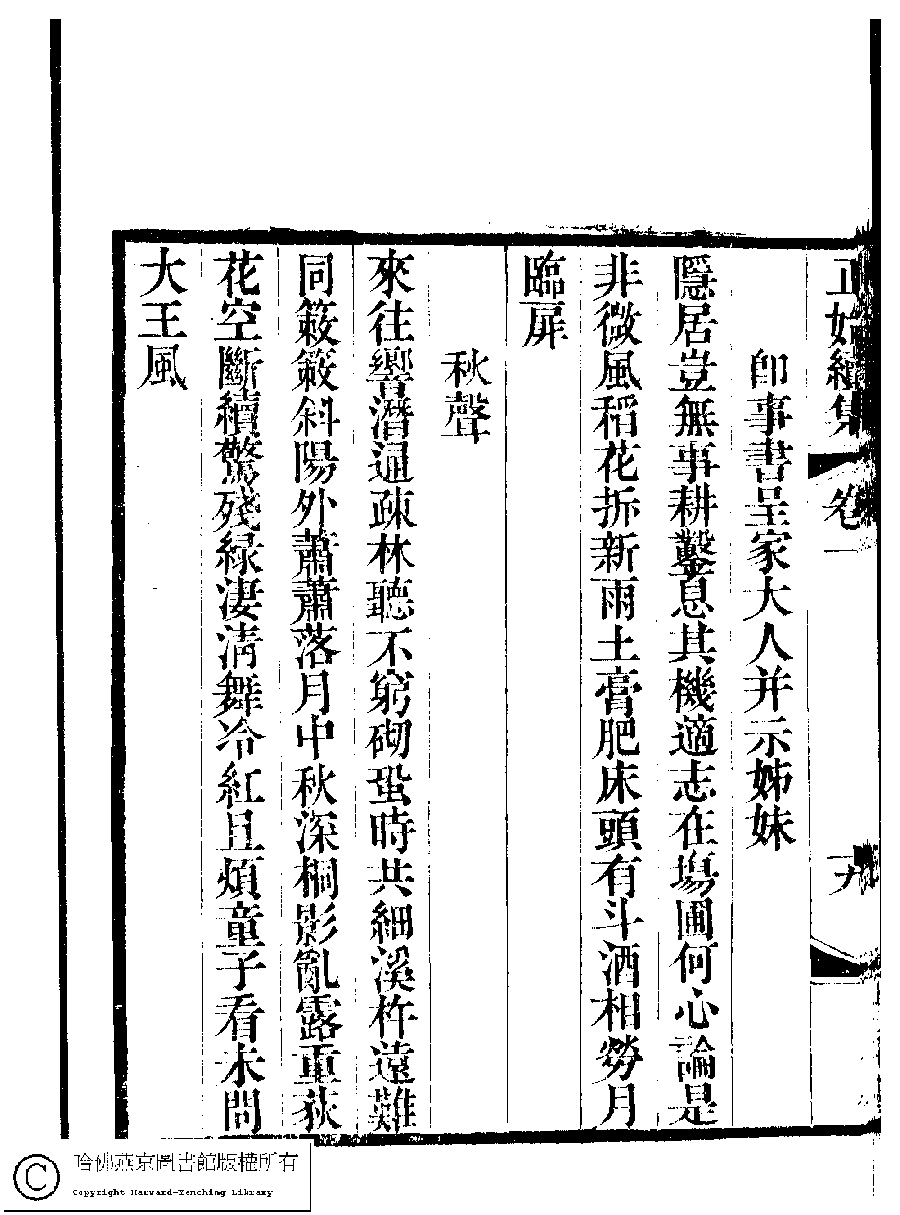 正始續集 卷一 十九
即事書呈家大人并示姊妹
隱居豈無事耕鑿息其機適志在塲圃何心論是
非微風稻花拆新雨土膏肥床頭有斗酒相勞月
臨扉
秋聲
來往響潛通疎林聽不窮砌蛩時共細溪杵遠難
同簌簌斜陽外蕭蕭落月中秋深桐影亂露重荻
花空斷續驚殘綠凄淸舞冷紅且煩童子看未問
大王風
哈佛燕京圖書館版權所有
Copyright Harvard-Yenching Library